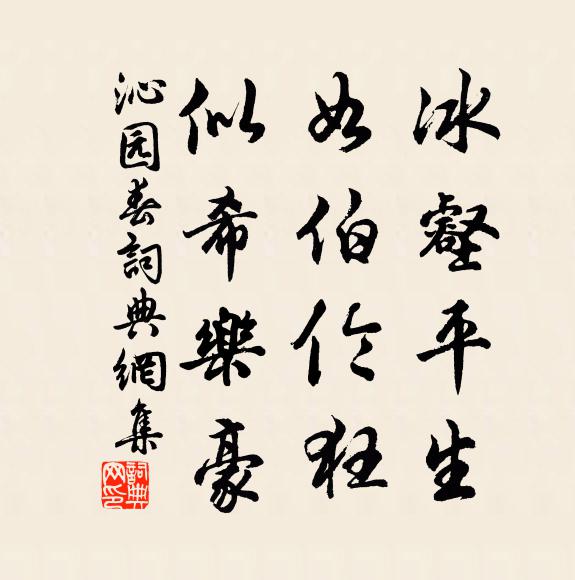 冰壑平生
如伯伶狂
似希樂豪
沁园春詞典網集
詞典網印